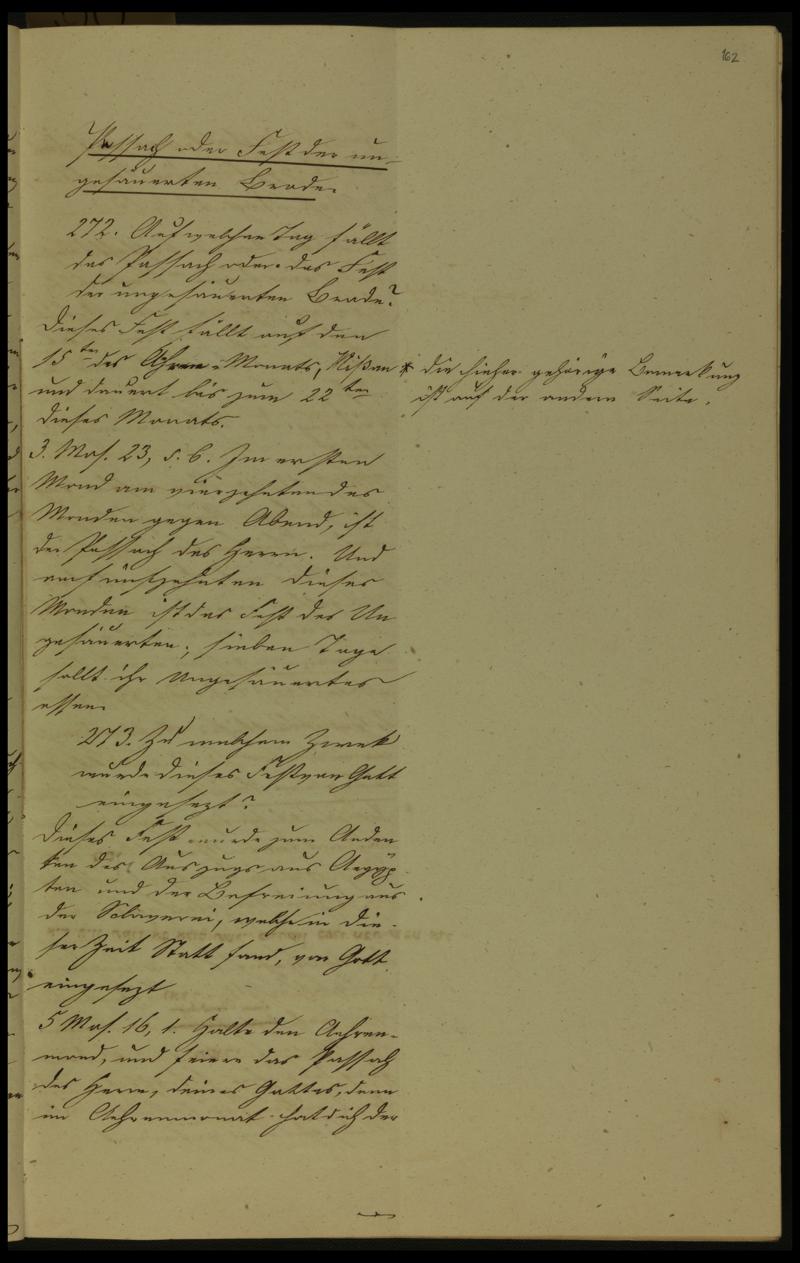 162
Passach oder Fest der un-
gesäuerten Brode.
272. Auf welchen Tag fällt
das Passach oder das Fest
der ungesäuerten Brode?
Dieses Fest fällt auf den
15ten des Ähren-Monats, Nißan *
und dauert bis zum 22ten
dieses Monats.
* die hieher gehörige Bemerkung
ist auf der andern Seite.
3. Mos. 23, 5. 6. Im ersten
Mond am vierzehnten des
Monden gegen Abend, ist
der Passach des Herrn. Und
am fünfzehnten dieses
Monden ist das Fest des Un
gesäuerten; sieben Tage
sollt ihr Ungesäuertes
essen.
273. Zu welchem Zwek
wurde dieses Fest von Gott
eingesezt?
Dieses Fest wurde zum Anden
ken des Auszugs aus Aegyp-
ten und der Befreiung aus
der Sclaverei, welche in die-
ser Zeit Statt fand, von Gott
eingesezt
5 Mos. 16, 1. Halte den Aehren-
mond, und feiere das Passach
des Herrn, deines Gottes, denn
im Aehrenmonat hat dich der